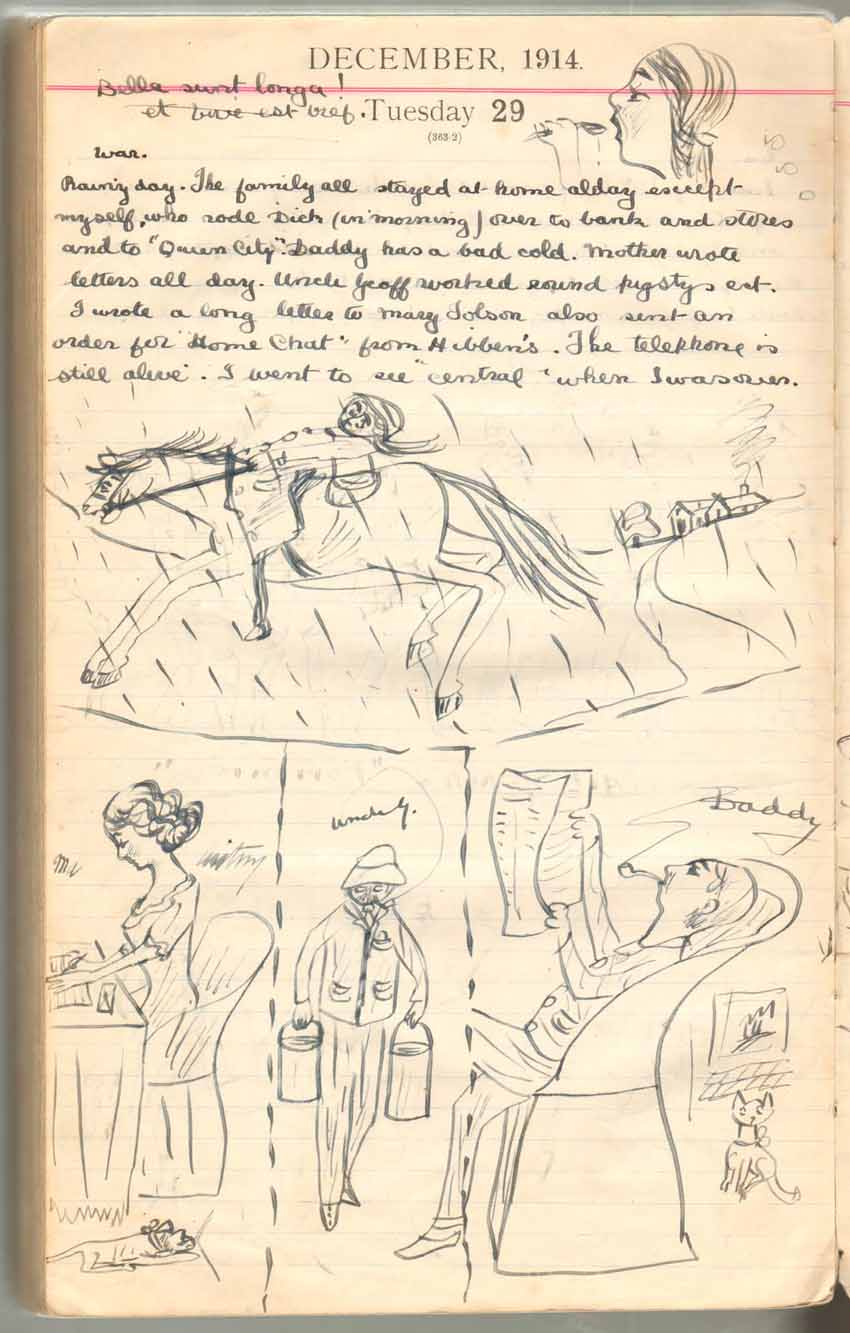 DECEMBER, 1914.
Bella sunt longa!
et vive est bref. Tuesday 29
(363-2)
war.
Rainiy day. The family all stayed at home alday escept
myself, who rode Dick (in morning) over to bank and stores
and to "Queen City". Daddy has a bad cold. Mother wrote
letters all day. Uncle Geoff worked round pigstys ect.
I wrote a long letter to Mary Tolson also sent an
order for "Home Chat" from Hibben's. The telephone is
still alive. I went to see "central" when I was over.
Daddy
uncle G.
writing